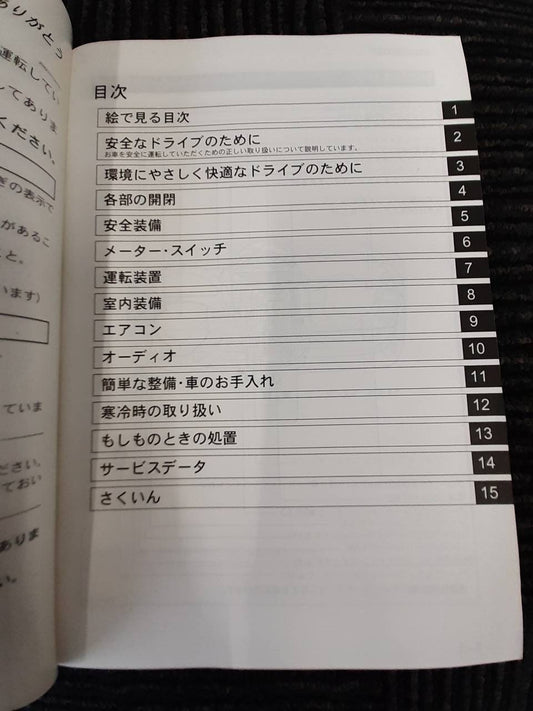 目次
絵で見る目次 1
安全なドライブのために 2
お車を安全に運転していただくための正しい取り扱いについて説明しています。
環境にやさしく快適なドライブのために 3
各部の開閉 4
安全装備 5
メーター・スイッチ 6
運転装置 7
室内装備 8
エアコン 9
オーディオ 10
簡単な整備・車のお手入れ 11
寒冷時の取り扱い 12
もしものときの処置 13
サービスデータ 14
さくいん 15
ありがとう
運転してい
してありま
ください。
の表示で
があるこ
と。
います)
ていま
ださい。
ておい
ありま
い。